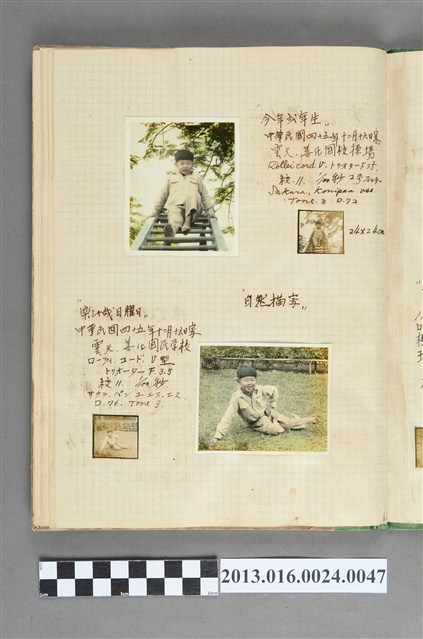 "今年六年生"
中華民國四十五年十二月十六日寫
雲天、善化國校操場
Rolleicord V. トリオターF3.5
絞 11. 1/100秒
Sakura, Konipan
Tone. 3 D.72
24×24cm
"自然描客"
中華民國四十五年十二月十六日寫
雲天 善化國民學校
ローライ、コード. V型
トリオターF. 3.5
絞 11. 1/100秒
サクラ、パン エス、エス
D.76. Tone 3.
2013.016.0024.0047